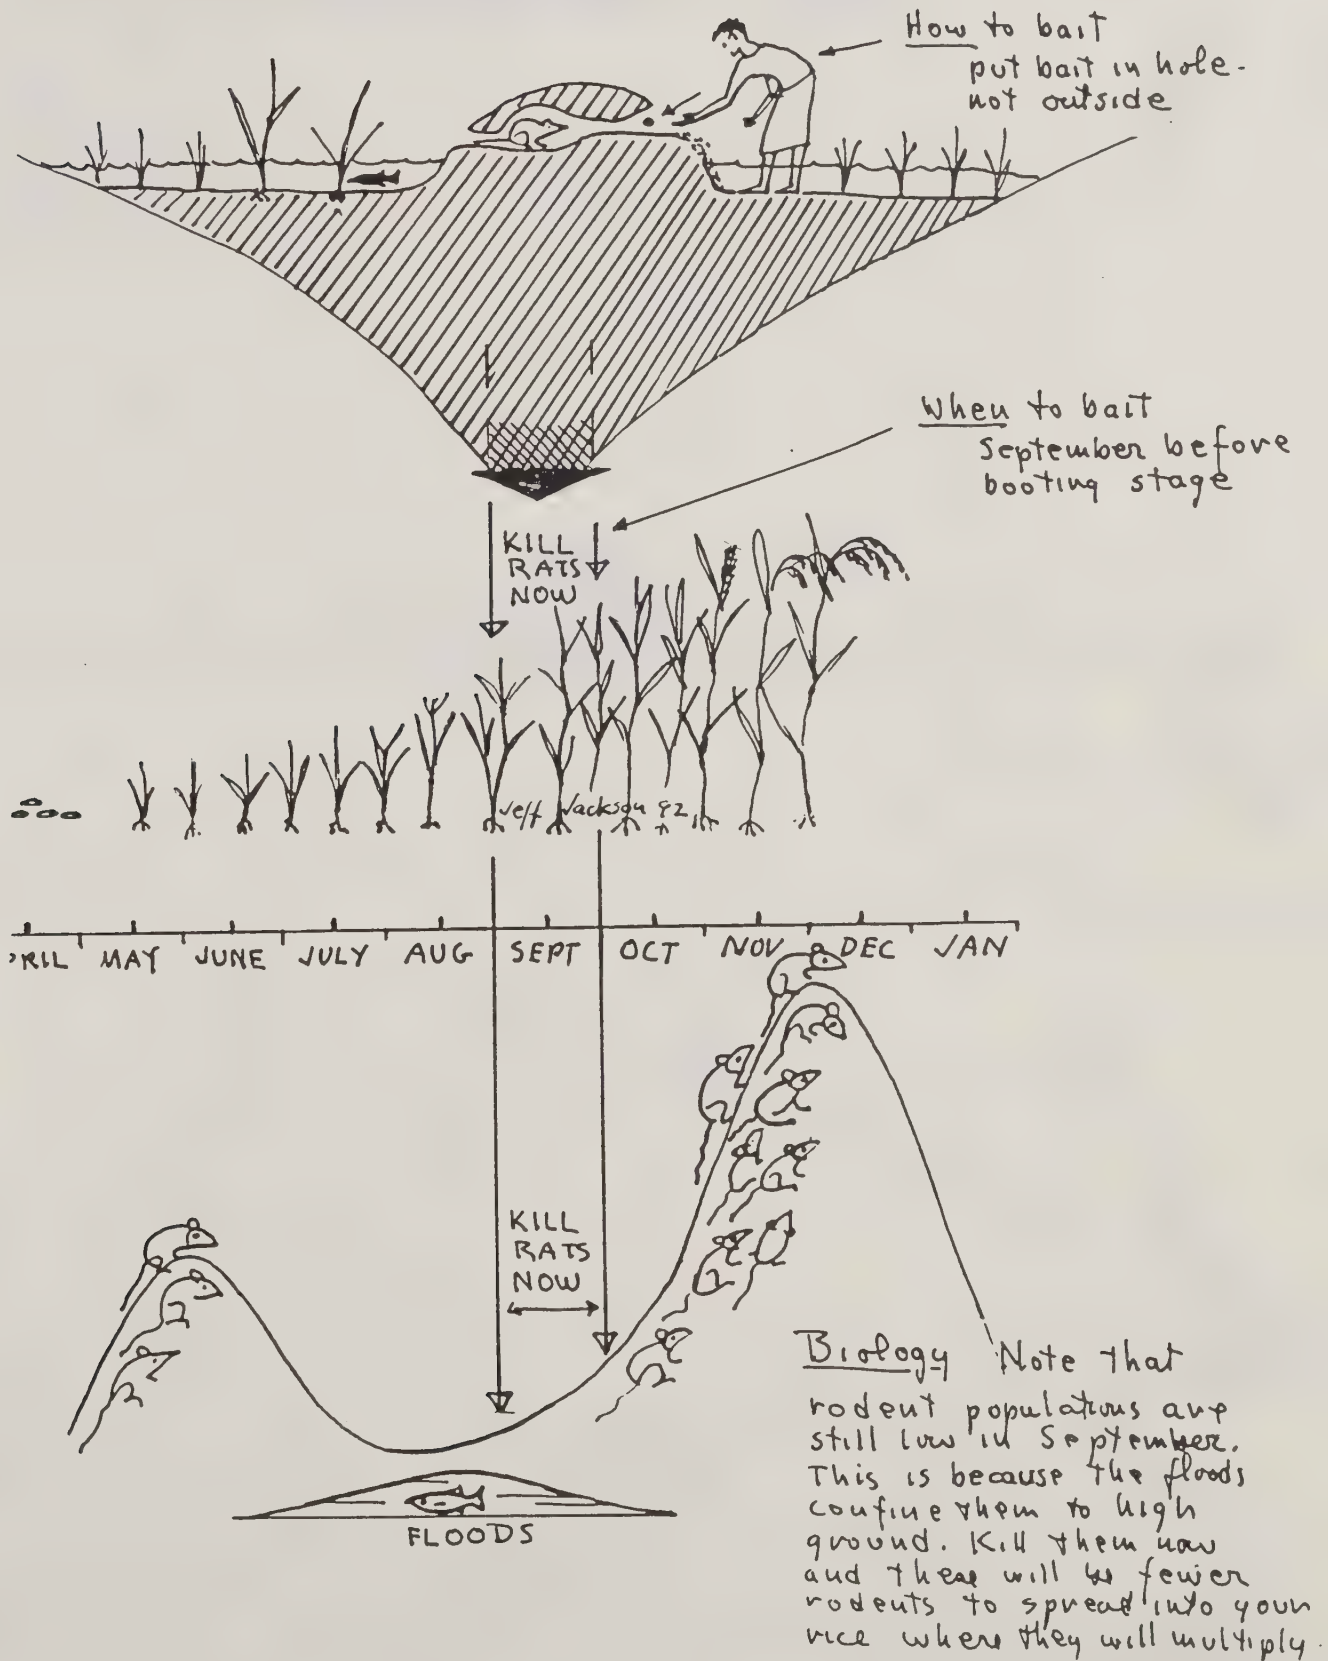 How to bait
put bait in hole.
not outside
When to bait
September before
booting stage
KILL
RATS
NOW
Jeff Jackson 92
PRIL MAY JUNE JULY AUG SEPT OCT NOV DEC JAN
KILL
RATS
NOW
FLOODS
Biology Note that
rodent populations are
still low in September.
This is because the floods
confine them to high
ground. Kill them now
and there will be fewer
rodents to spread into your
rice where they will multiply.